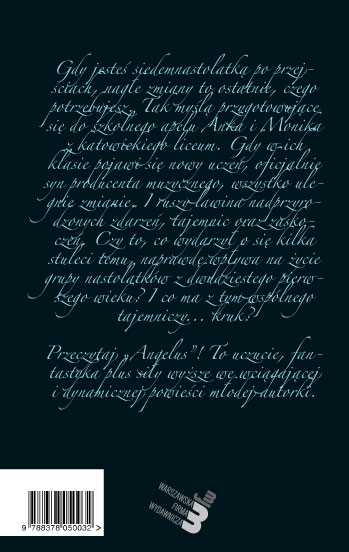 Gdy jesteś siedemnastolatką po przej-
ściach, nagłe zmiany to ostatnie, czego
potrzebujesz. Tak myślą przygotowujące
się do szkolnego apelu Anka i Monika
z katowickiego liceum. Gdy w ich
klasie pojawi się nowy uczeń, oficjalnie
syn producenta muzycznego, wszystko ule-
gnie zmianie. I ruszy lawina nadprzyro-
dzonych zdarzeń, tajemnic oraz zasko-
czeń. Czy to, co wydarzył o się kilka
stuleci temu, naprawdę wpływa na życie
grupy nastolatków z dwudziestego pierw-
szego wieku? I co ma z tym wspólnego
tajemniczy... kruk?
Przeczytaj „Angelus”! To uczucie, fan-
tastyka plus siły wyższe we wciągającej
i dynamicznej powieści młodej autorki.
WARSZAWSKA
FIRMA
WYDAWNICZA
wfw
9 788378 050032